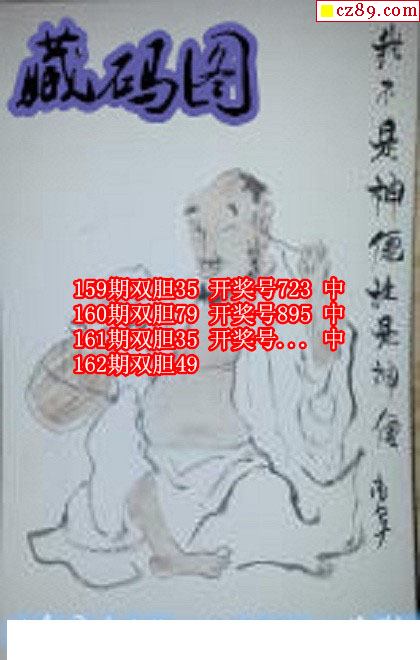 cz89.com
藏码图
我不是神便社是神便
159期双胆35 开奖号723 中
160期双胆79 开奖号895 中
161期双胆35 开奖号... 中
162期双胆49